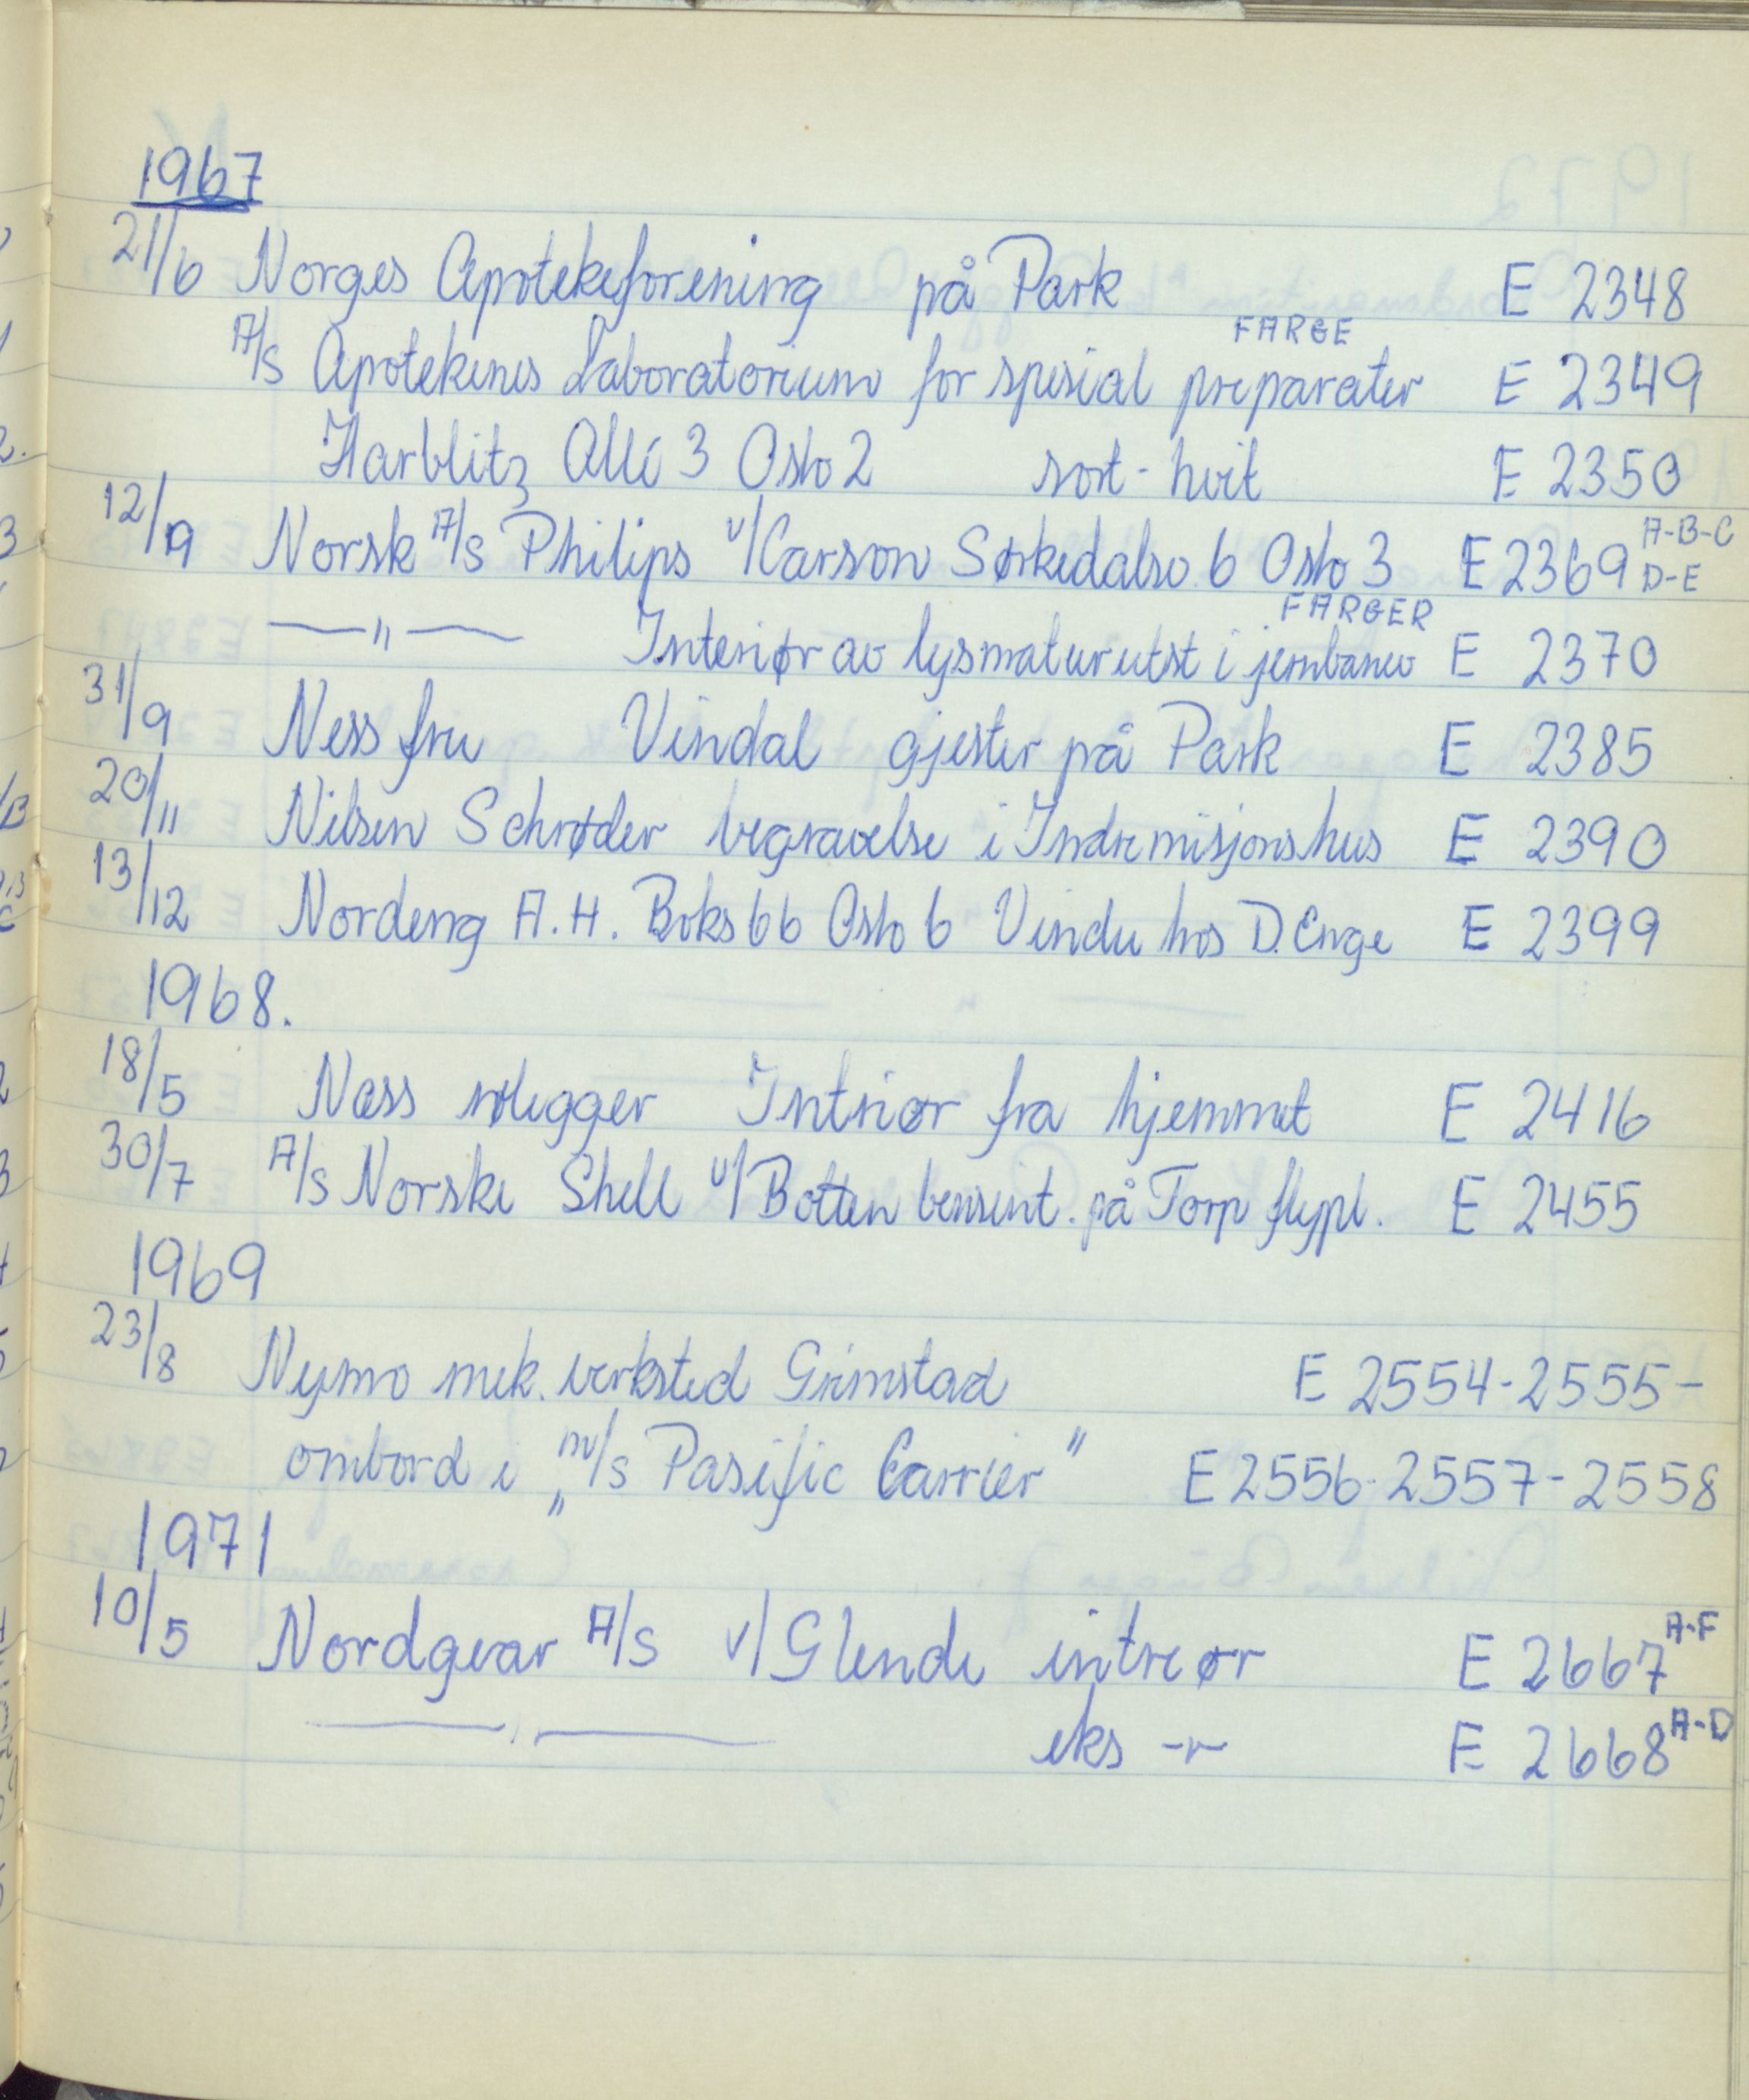 1967
21/6 Norges Apotekeforening på Park E 2348
A/S Apotekenes Laboratorium for spesial preparater FARGE E 2349
Harblitz Alle 3 Oslo 2 sort-hvit E 2350
12/9 Norsk A/S Philips v/Carson Sørkedalsv. 6 Oslo 3 E 2369 A-B-C D-E
—"— Interiør av lysmatur utst i jernbanev FARGER E 2370
31/9 Ness fru Vindal gjester på Park E 2385
20/11 Nilsen Schrøder begravelse i Indremisjonshus E 2390
13/12 Nordeng A.H. Boks 66 Oslo 6 Vindu hos D. Enge E 2399
1968.
18/5 Næss rølegger Interiør fra hjemmet E 2416
30/7 A/S Norske Shell v/Botten bensint. på Torp flypl. E 2455
1969
23/8 Nymo mek. verksted Grimstad E 2554-2555-
ombord i „m/s Pasific Carrier" E 2556-2557-2558
1971
10/5 Nordgear A/S v/Glende intreør E 2667 A-F
—"— eks -"- E 2668 A-D